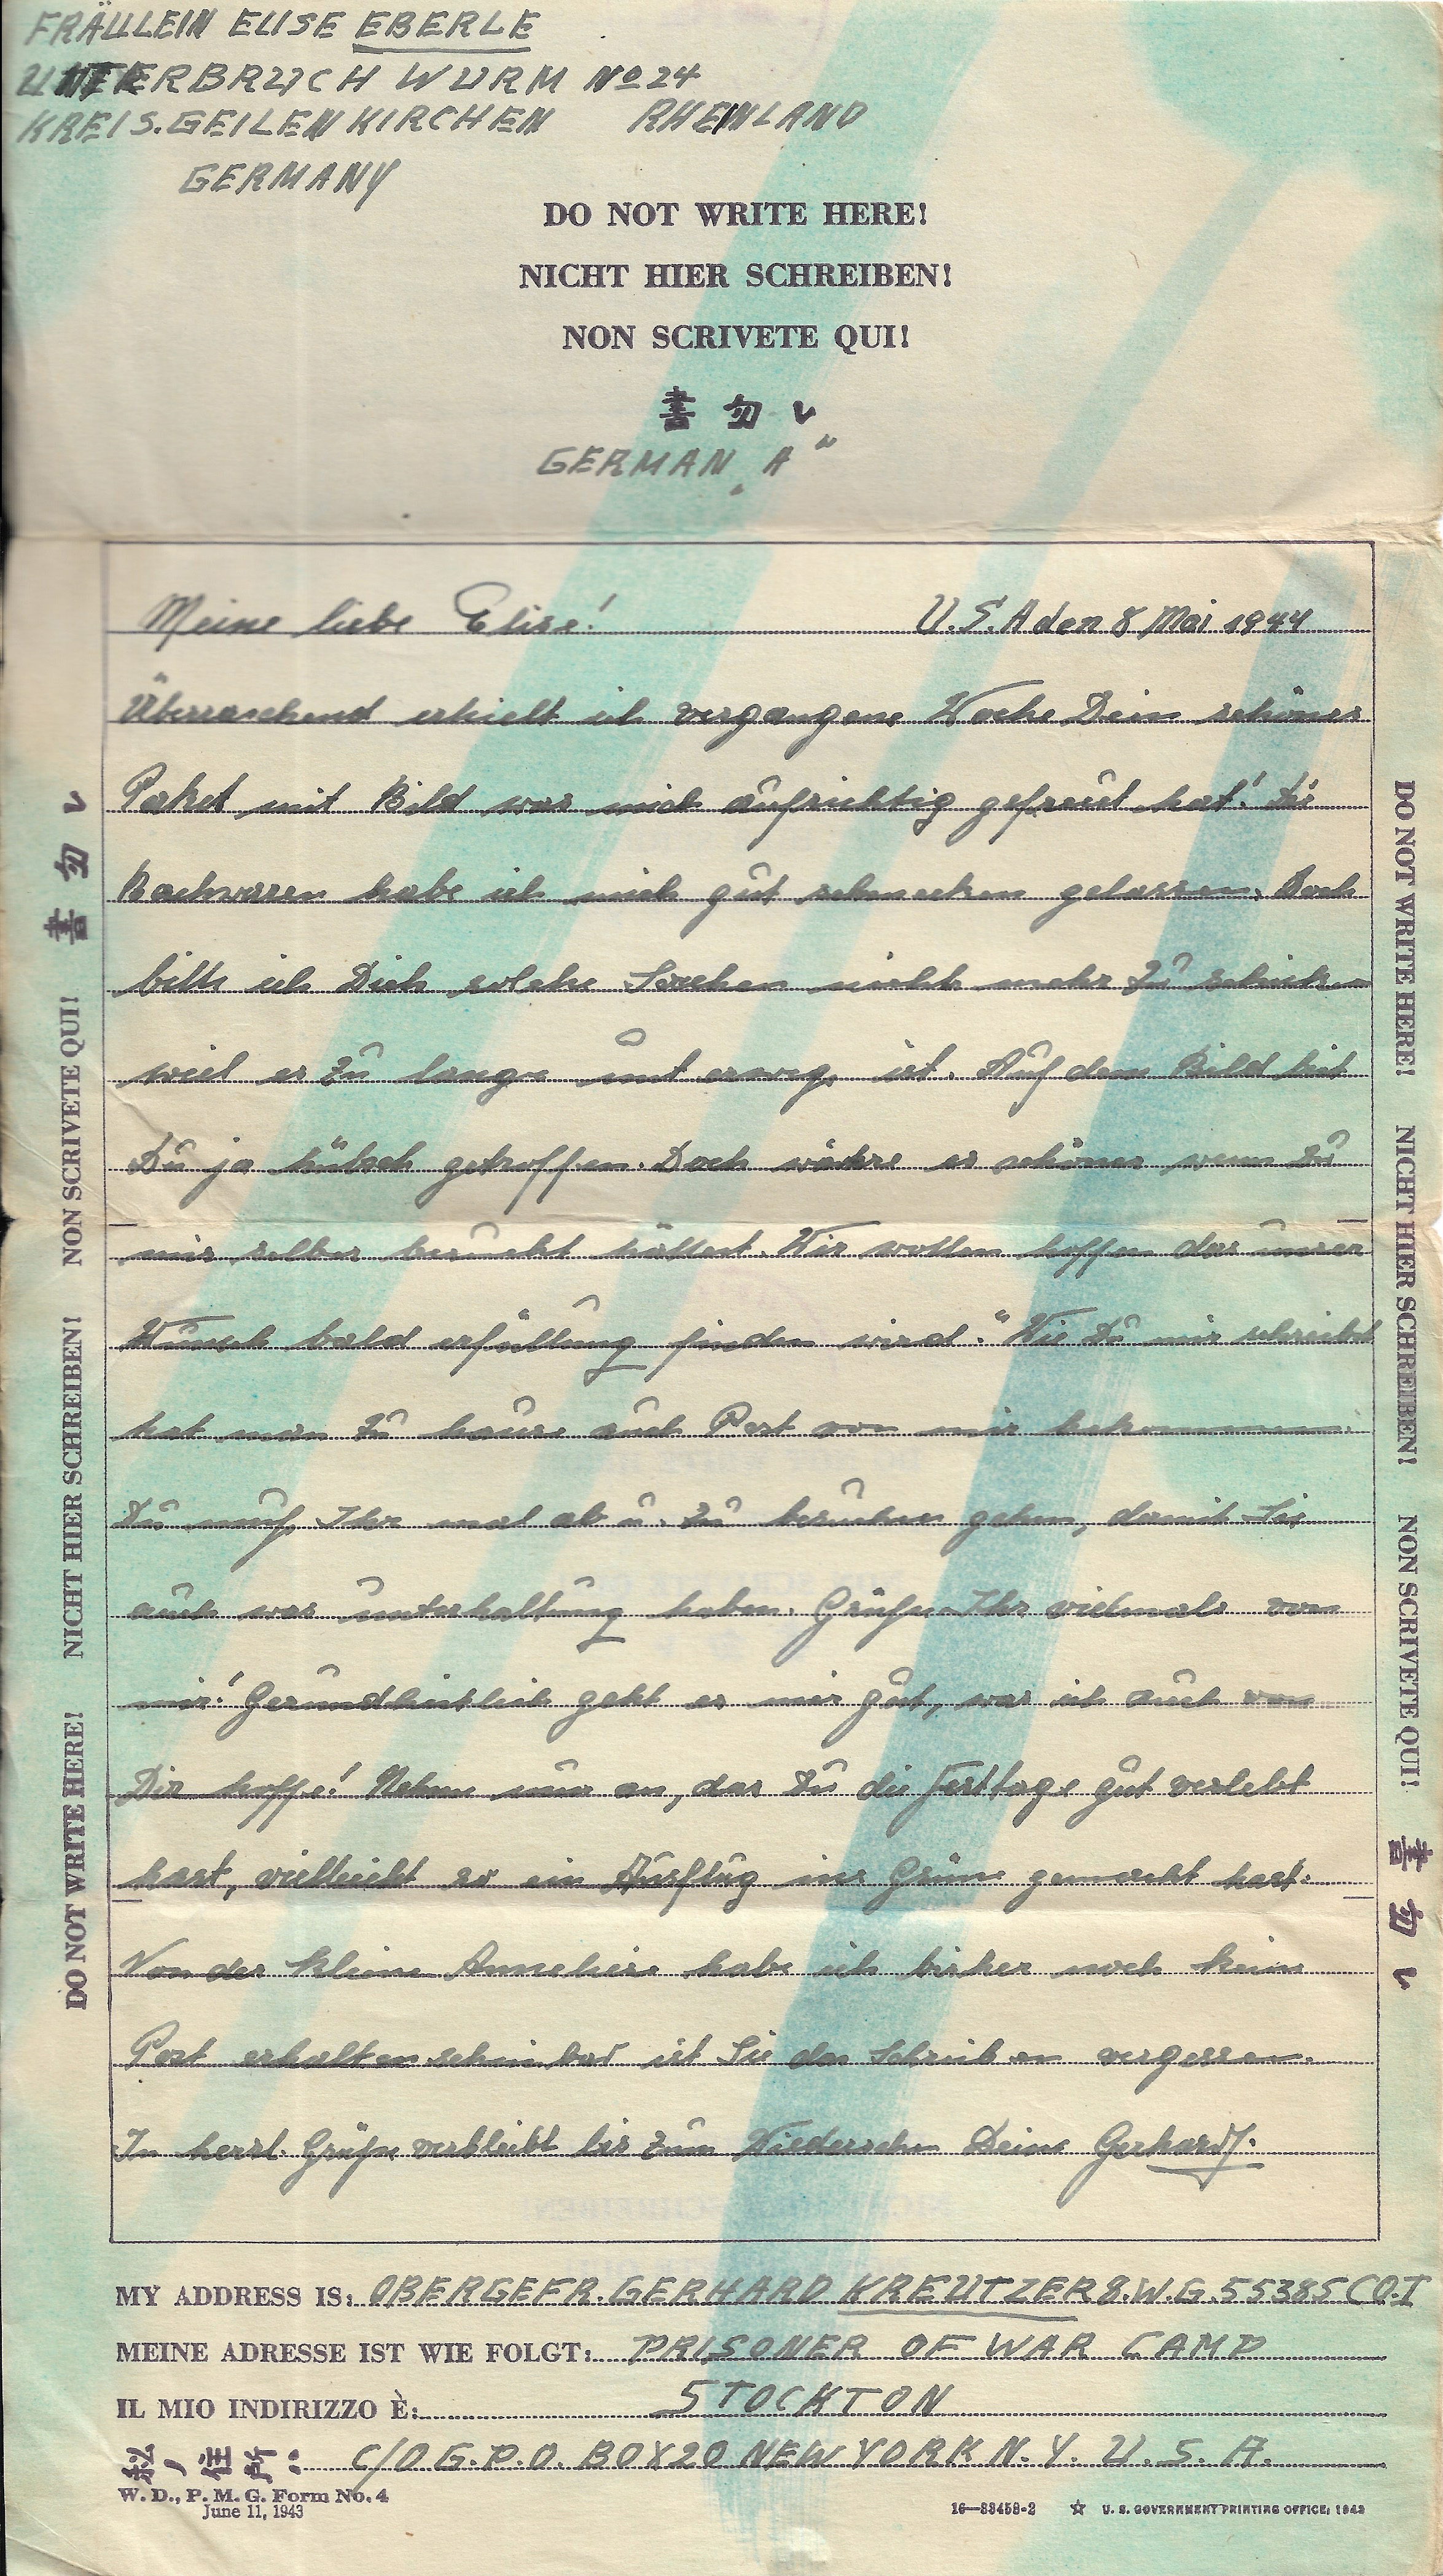 FRÄULLEIN ELISE EBERLE
UNTERBRUCH WURM No 24
KREIS. GEILENKIRCHEN RHEINLAND
GERMANY
DO NOT WRITE HERE!
NICHT HIER SCHREIBEN!
NON SCRIVETE QUI!
書勿レ
GERMAN „A"
Meine liebe Elise! U.S.A den 8 Mai 1944
Überraschend erhielt ich vergangene Woche Dein schönes
Paket mit Bild was mich aufrichtig gefreut hat! Die
Backwaren habe ich mich gut schmecken gelassen, Doch
bitte ich Dich solche Sachen nicht mehr zu schicken
weil es zu lange unterwegs ist. Auf dem Bild bist
Du ja hübsch getroffen. Doch währe es schöner wenn Du
mir selber besucht hättest. Wir wollen hoffen das unser
Wunsch bald erfüllung finden wird." Wie Du mir schreibst
hat man zu hause auch Post von mir bekommen.
Du muß Ihr mal ab u. zu besuchen gehen, damit Sie
auch was unterhaltung haben. Grüße Ihr vielmals von
mir! Gesundheitlich geht es mir gut, was ich auch von
Dir hoffe! Nehme nun an, das Du die Festtage gut verlebt
hast, vielleicht so ein Ausflug ins Grüne gemacht hast.
Von der kleine Anneliese habe ich bisher noch kein
Post erhalten scheinbar ist Sie das Schreiben vergessen.
In herzl. Grüße verbleibt bis zum Wiedersehen Deine Gerhard.
MY ADDRESS IS: OBERGEFR. GERHARD KREUTZER 8.W.G.55385 CO.I
MEINE ADRESSE IST WIE FOLGT: PRISONER OF WAR CAMP
IL MIO INDIRIZZO È: STOCKTON
私ノ住所: C/O G.P.O. BOX 20 NEW YORK N.Y. U.S.A.
W. D., P. M. G. Form No. 4
June 11, 1943
16—33458-2 ☆ U. S. GOVERNMENT PRINTING OFFICE: 1943
DO NOT WRITE HERE! NICHT HIER SCHREIBEN! NON SCRIVETE QUI! 書勿レ
DO NOT WRITE HERE! NICHT HIER SCHREIBEN! NON SCRIVETE QUI! 書勿レ